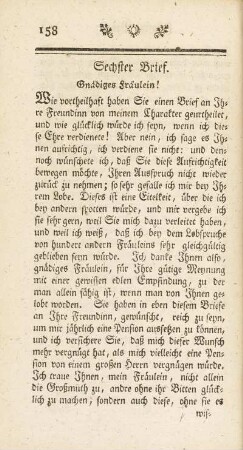 158
Sechster Brief.
Gnädiges Fräulein!
Wie vortheilhaft haben Sie einen Brief an Ih-
re Freundinn von meinem Charakter geurtheilet,
und wie glücklich würde ich seyn, wenn ich die-
se Ehre verdienete! Aber nein, ich sage es Ih-
nen aufrichtig, ich verdiene sie nicht: und den-
noch wünschete ich, daß Sie diese Aufrichtigkeit
bewegen möchte, Ihren Ausspruch nicht wieder
zurück zu nehmen; so sehr gefalle ich mir bey Ih-
rem Lobe. Dieses ist eine Eitelkeit, über die ich
bey andern spotten würde, und mir vergebe ich
sie sehr gern, weil Sie mich dazu verleitet haben,
und weil ich weiß, daß ich bey dem Lobspruche
von hundert andern Fräuleins sehr gleichgültig
geblieben seyn würde. Ich danke Ihnen also,
gnädiges Fräulein, für Ihre gütige Meynung
mit einer gewissen edlen Empfindung, zu der
man allein fähig ist, wenn man von Ihnen ge-
lobt worden. Sie haben in eben diesem Briefe
an Ihre Freundinn, gewünscht, reich zu seyn,
um mir jährlich eine Pension aussetzen zu können,
und ich versichere Sie, daß mich dieser Wunsch
mehr vergnügt hat, als mich vielleicht eine Pen-
sion von einem großen Herrn vergnügen würde.
Ich traue Ihnen, mein Fräulein, nicht allein
die Großmuth zu, andre ohne ihr Bitten glück-
lich zu machen, sondern auch diese, ohne sie es
wis-